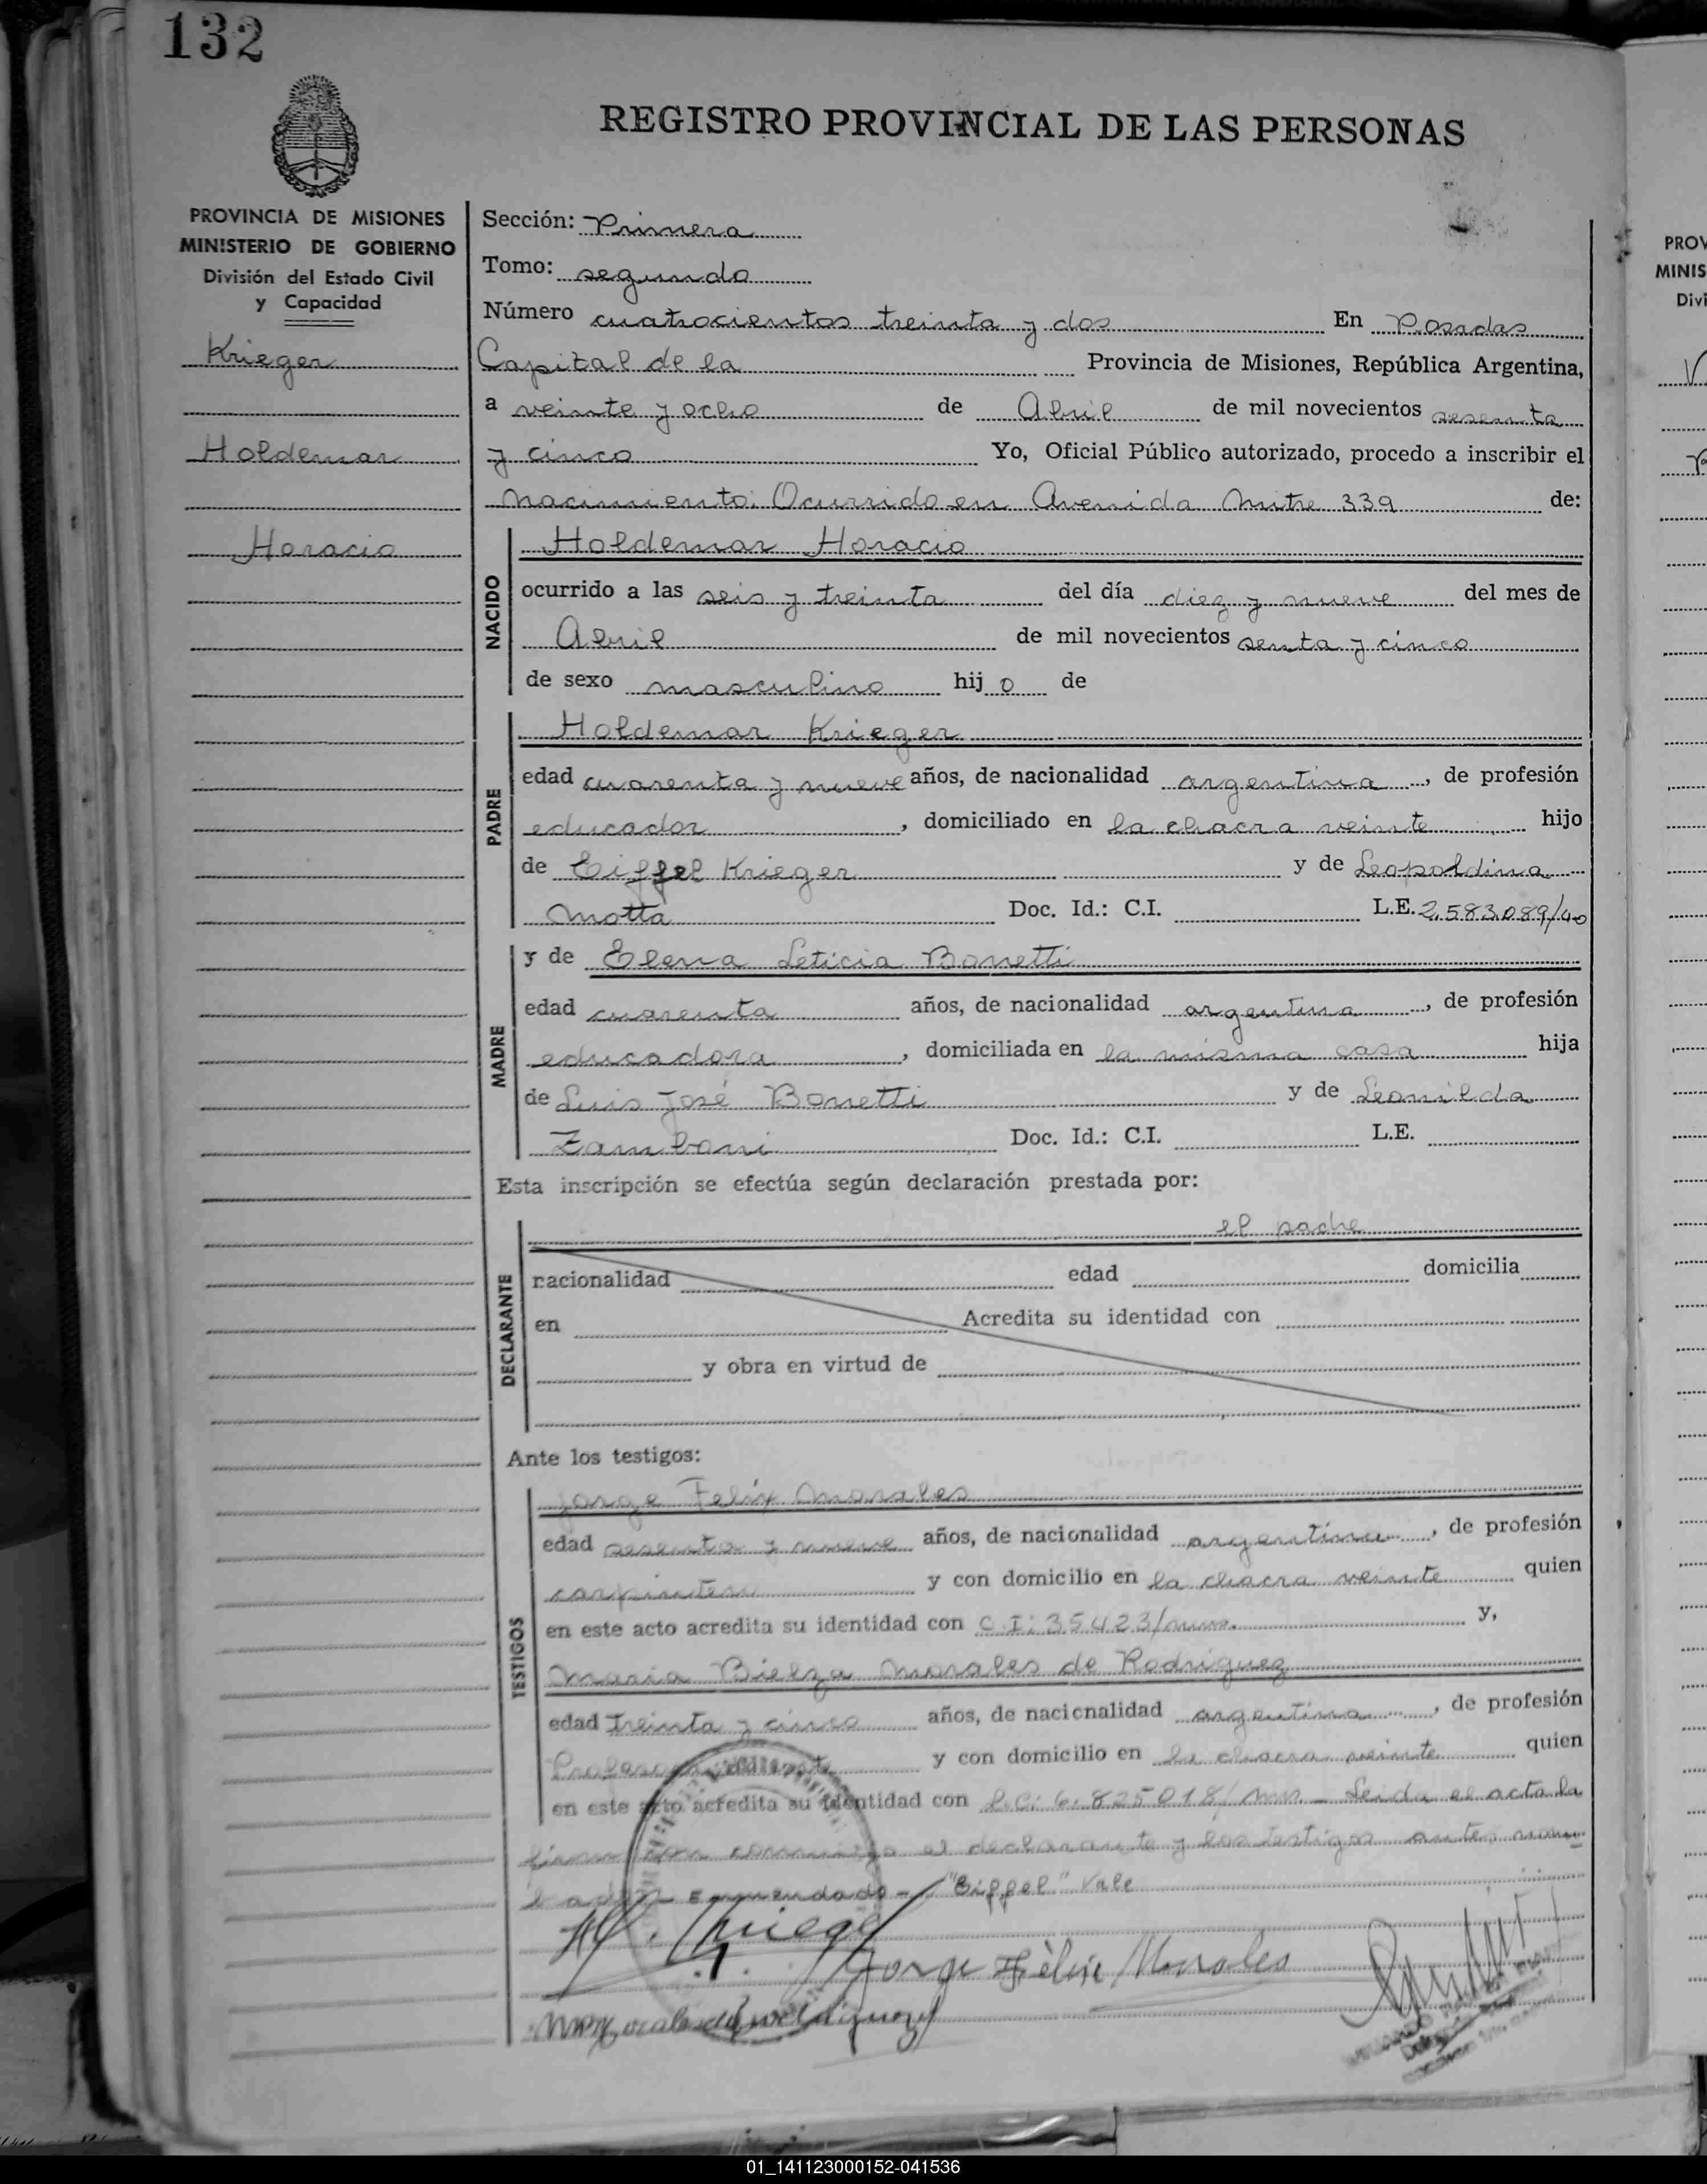 132
REGISTRO PROVINCIAL DE LAS PERSONAS
PROVINCIA DE MISIONES
MINISTERIO DE GOBIERNO
División del Estado Civil
y Capacidad
Krieger
Holdemar
Horacio
Sección: Primera
Tomo: segundo
Número cuatrocientos treinta y dos En Posadas
Capital de la Provincia de Misiones, República Argentina,
a veinte y ocho de Abril de mil novecientos sesenta
y cinco Yo, Oficial Público autorizado, procedo a inscribir el
nacimiento: Ocurrido en Avenida Mitre 339 de:
NACIDO
Holdemar Horacio
ocurrido a las seis y treinta del día diez y nueve del mes de
Abril de mil novecientos senta y cinco
de sexo masculino hijo de
PADRE
Holdemar Krieger
edad cuarenta y nueve años, de nacionalidad argentina, de profesión
educador, domiciliado en la chacra veinte hijo
de Eiffel Krieger y de Leopoldina
Motta Doc. Id.: C.I. L.E. 2.583.089/40
MADRE
y de Elena Leticia Bonetti
edad cuarenta años, de nacionalidad argentina, de profesión
educadora, domiciliada en la misma casa hija
de Luis José Bonetti y de Leonilda
Zamboni Doc. Id.: C.I. L.E.
Esta inscripción se efectúa según declaración prestada por:
DECLARANTE
el padre
nacionalidad edad domicilia
en Acredita su identidad con
y obra en virtud de
Ante los testigos:
TESTIGOS
Jorge Felix Morales
edad sesenta y nueve años, de nacionalidad argentina, de profesión
carpintero y con domicilio en la chacra veinte quien
en este acto acredita su identidad con C.I: 35423/ y,
Maria Bielza Morales de Rodriguez
edad treinta y cinco años, de nacionalidad argentina, de profesión
y con domicilio en la chacra veinte quien
en este acto acredita su identidad con L.C: 6.825018/ Mns. - Leida el acta la
firman conmigo el declarante y los testigos antes nom-
brados - Enmendado - "Eiffel" Vale
H. Krieger
Jorge Félix Morales
PROV
MINIS
Divi
01_141123000152-041536